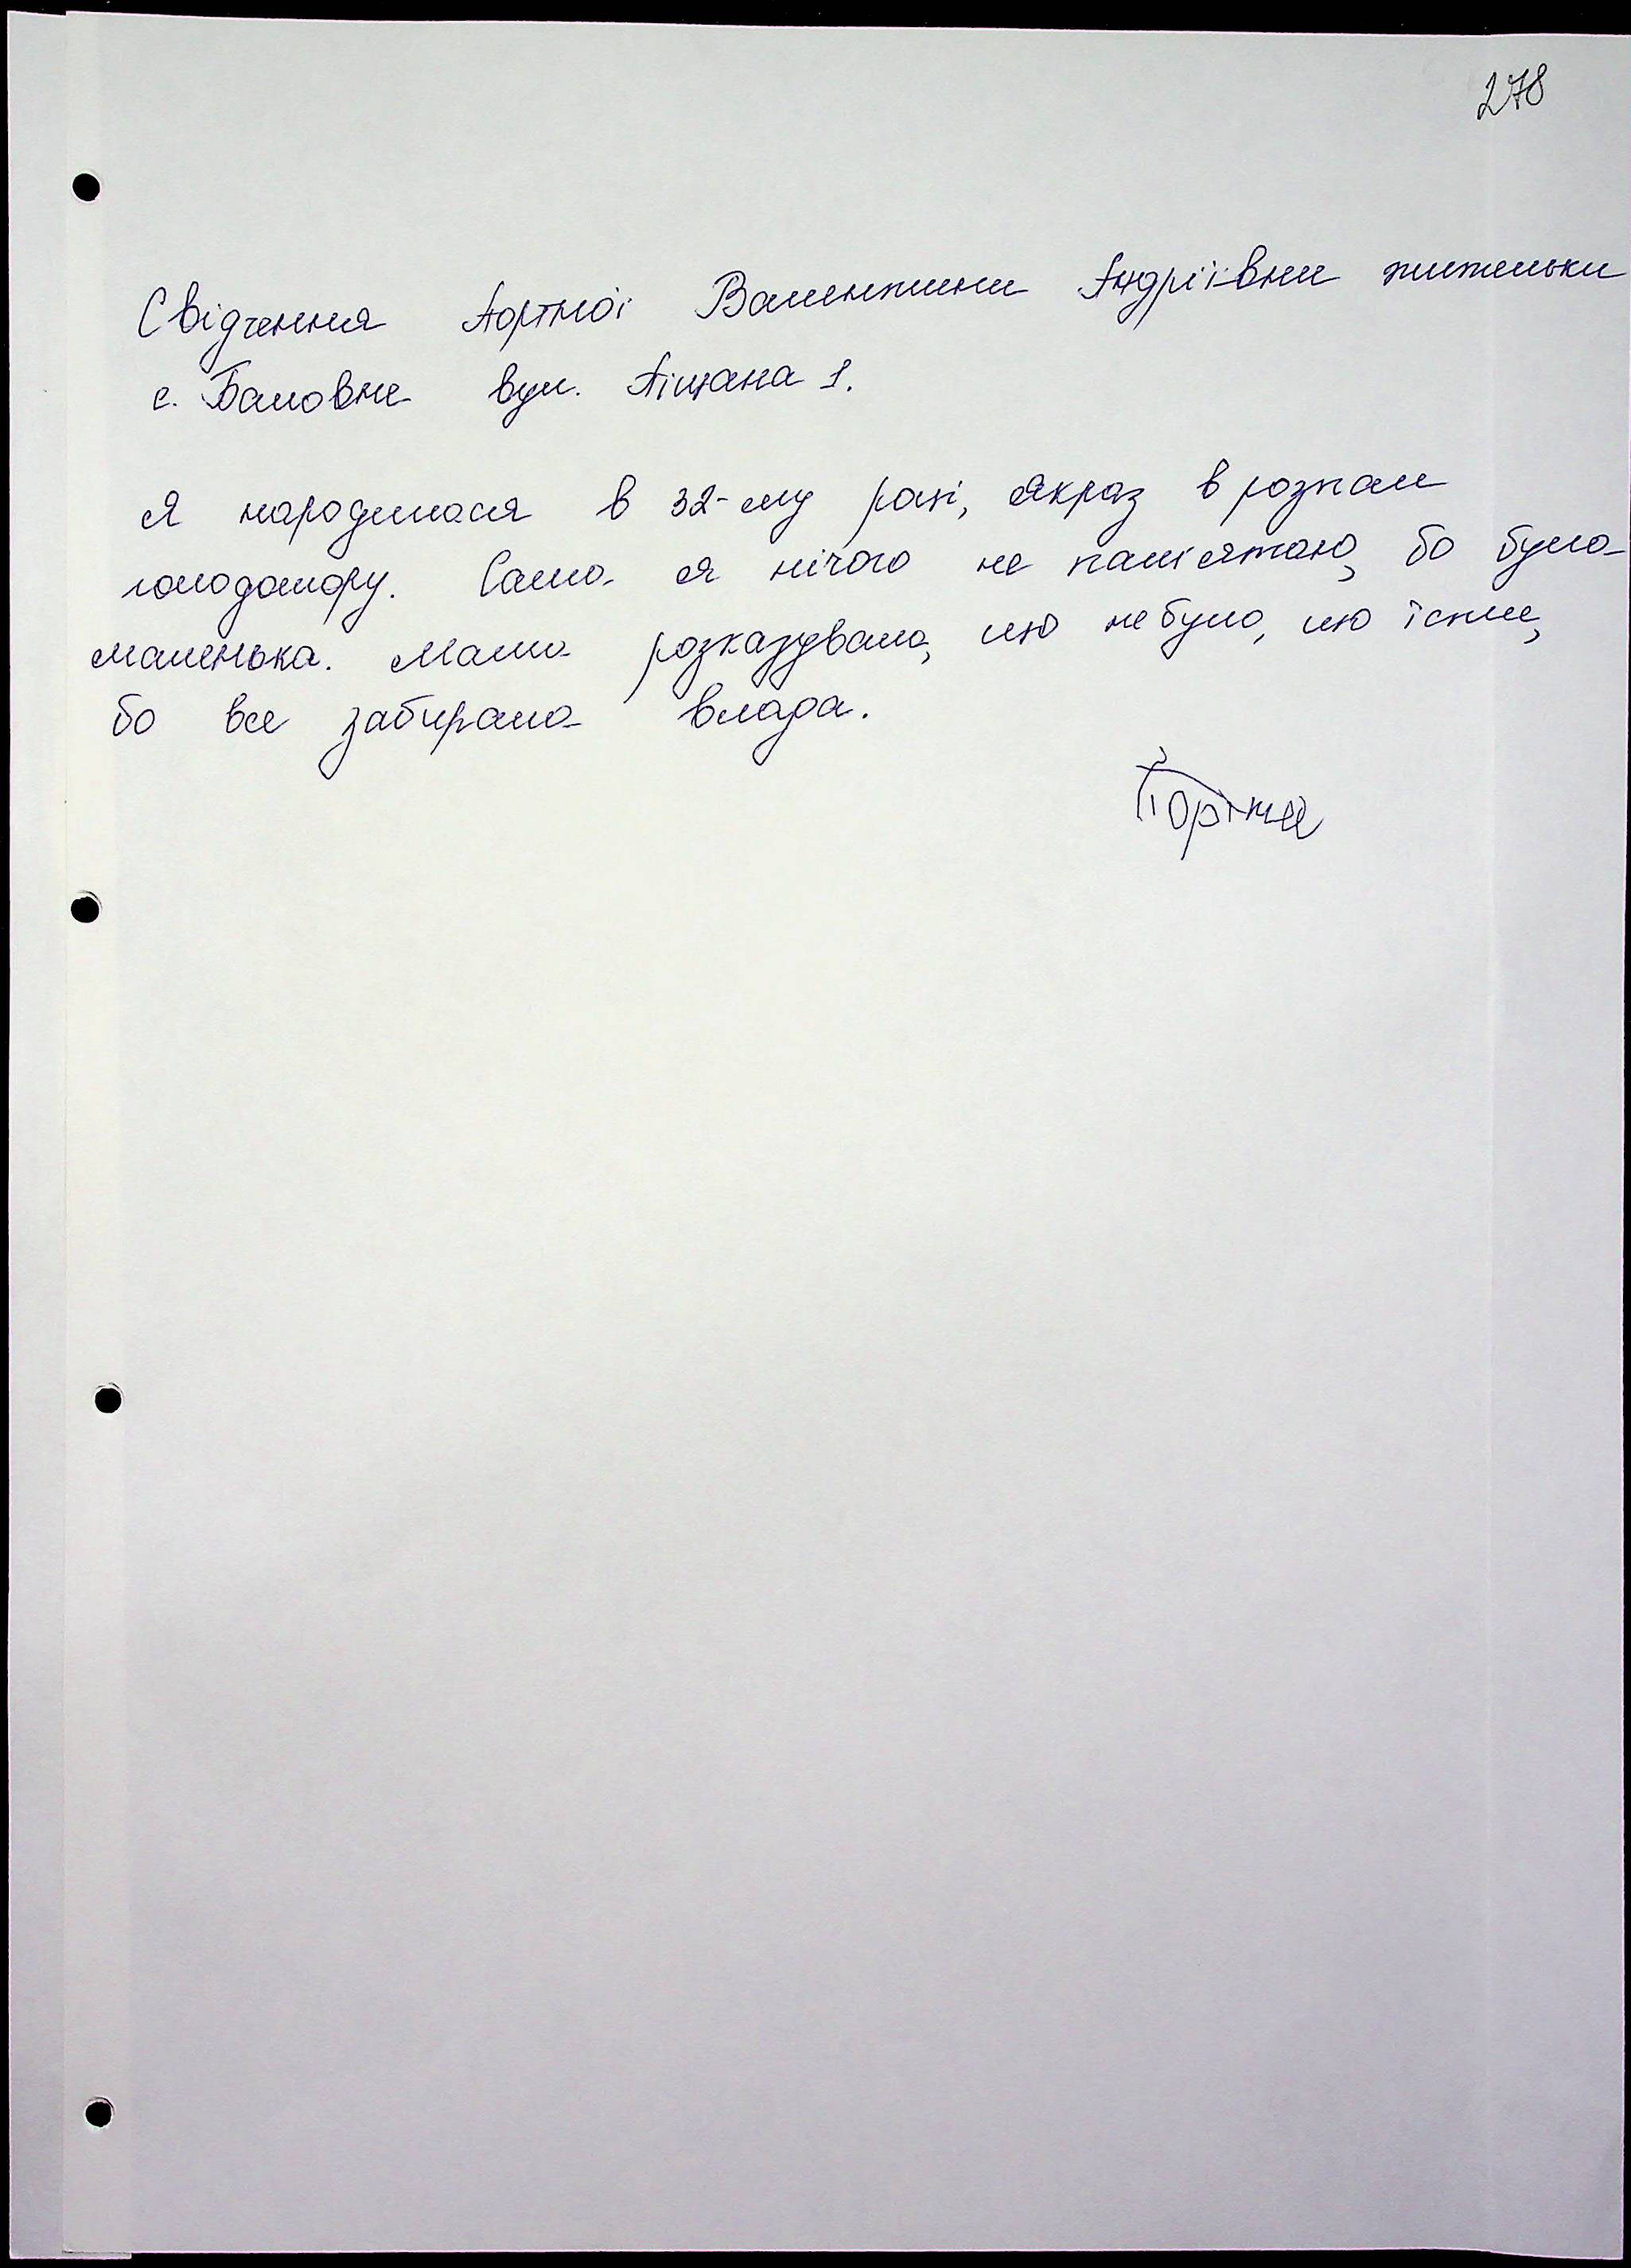 278
Свідчення Портної Валентини Андріївни жительки
с. Баловне вул. Піщана 1.
Я народилася в 32-му році, якраз в розпал
голодомору. Сама я нічого не пам'ятаю, бо була
маленька. Мама розказувала, що не було, що їсти,
бо все забирала влада.
Портна